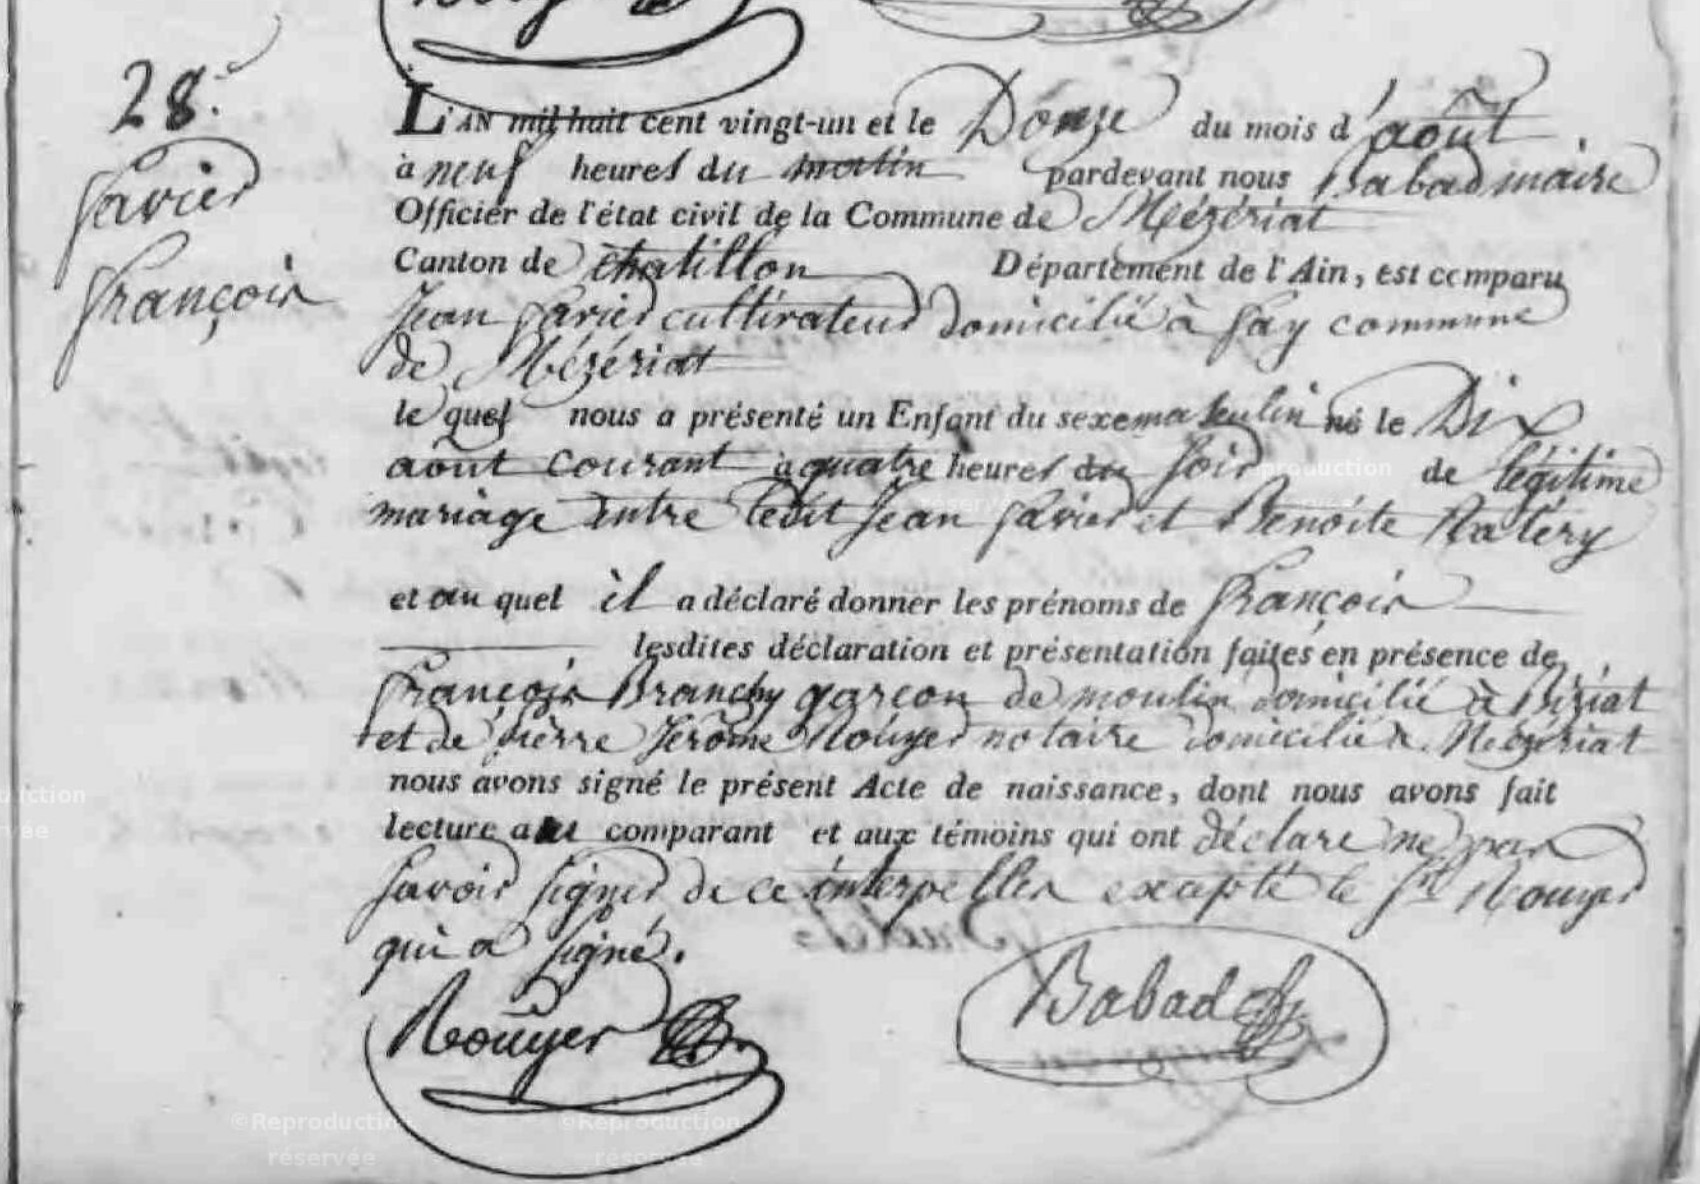 28.e
favier
françois
L'AN mil huit cent vingt-un et le Douze du mois d'août
à neuf heures du matin pardevant nous Babad maire
Officier de l'état civil de la Commune de Mézériat
Canton de chatillon Département de l'Ain, est comparu
Jean favier cultivateur domicilié à fay commune
de Mézériat
le quel nous a présenté un Enfant du sexe masculin né le Dix
aout courant à quatre heures du soir de légitime
mariage entre ledit Jean favier et Benoite
et au quel il a déclaré donner les prénoms de françois
lesdites déclaration et présentation faites en présence de
françois Branchy garcon de moulin domicilié à Biziat
et de pierre Jerôme Rouyer notaire domicilié à Mézériat
nous avons signé le présent Acte de naissance, dont nous avons fait
lecture au comparant et aux témoins qui ont déclaré ne pas
savoir signer de ce interpellés excepté le Sr Rouyer
qui a signé.
Rouyer Babad
©Reproduction
réservée
©Reproduction
réservée